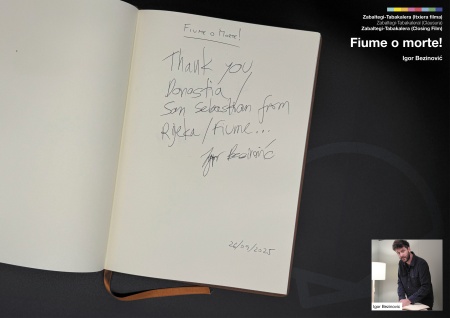 Fiume o Morte!
Thank you
Donostia/
San Sebastian from
Rijeka/Fiume...
Igor Bezinović
26/09/2025
Zabaltegi-Tabakalera (Itxiera filma)
Zabaltegi-Tabakalera (Clausura)
Zabaltegi-Tabakalera (Closing Film)
Fiume o morte!
Igor Bezinović
Igor Bezinovic